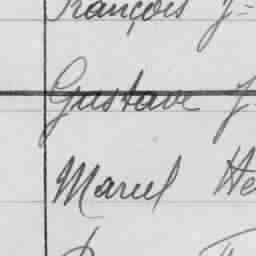 François J=
Gustave J
Marcel He